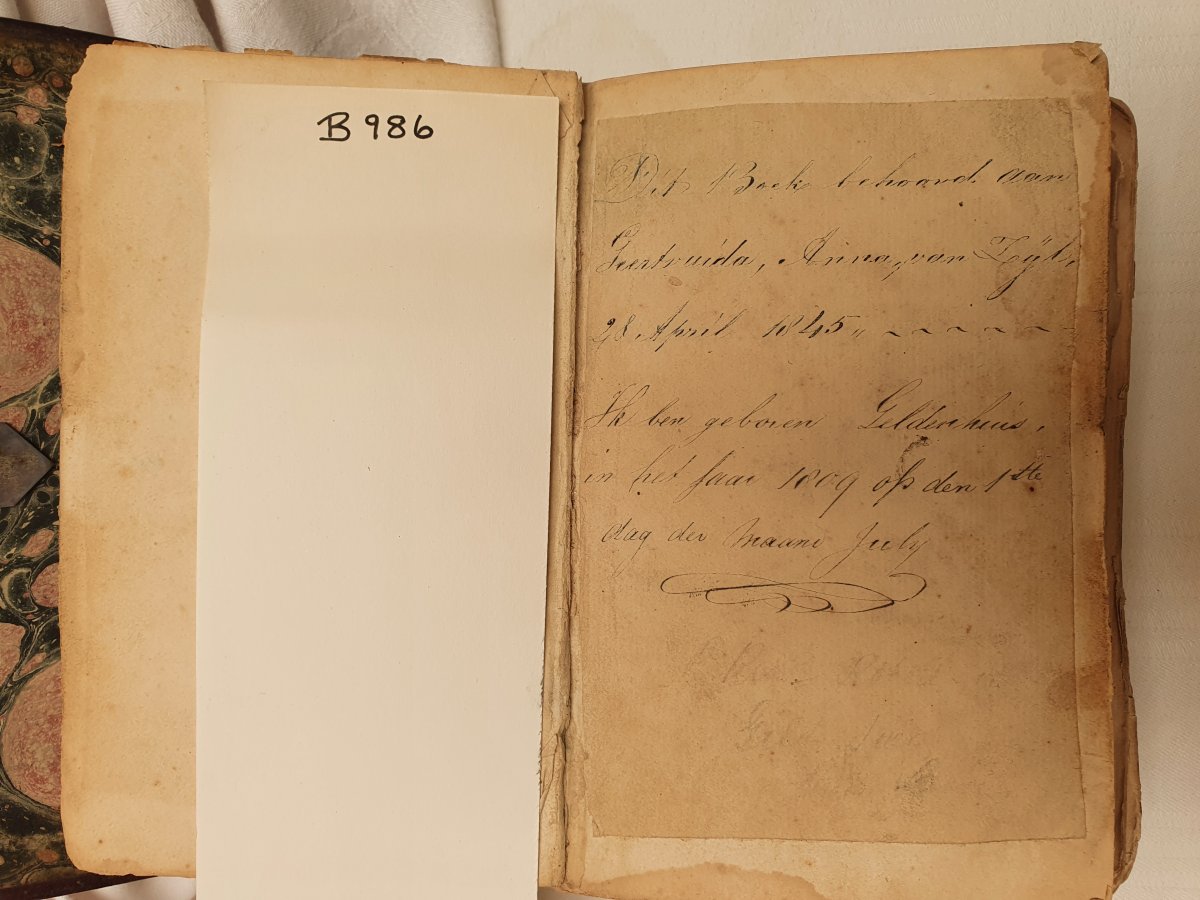 B 986
Dit Boek behoord aan
Geertruida, Anna, van Zÿl,
28 April 1845 „ ~ ~ ~ ~ ~ ~
Ik ben geboren Geldenhuis,
in het Jaar 1809 op den 1ste
dag der Maand July